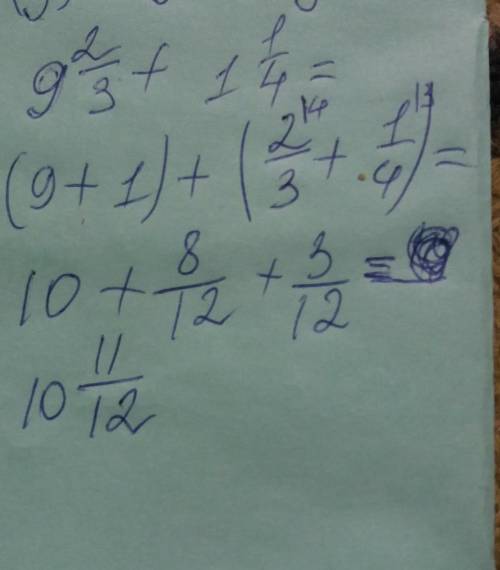 9 2/3 + 1 1/4 =
(9 + 1) + (2/3 \4 + 1/4 \3) =
10 + 8/12 + 3/12 =
10 11/12